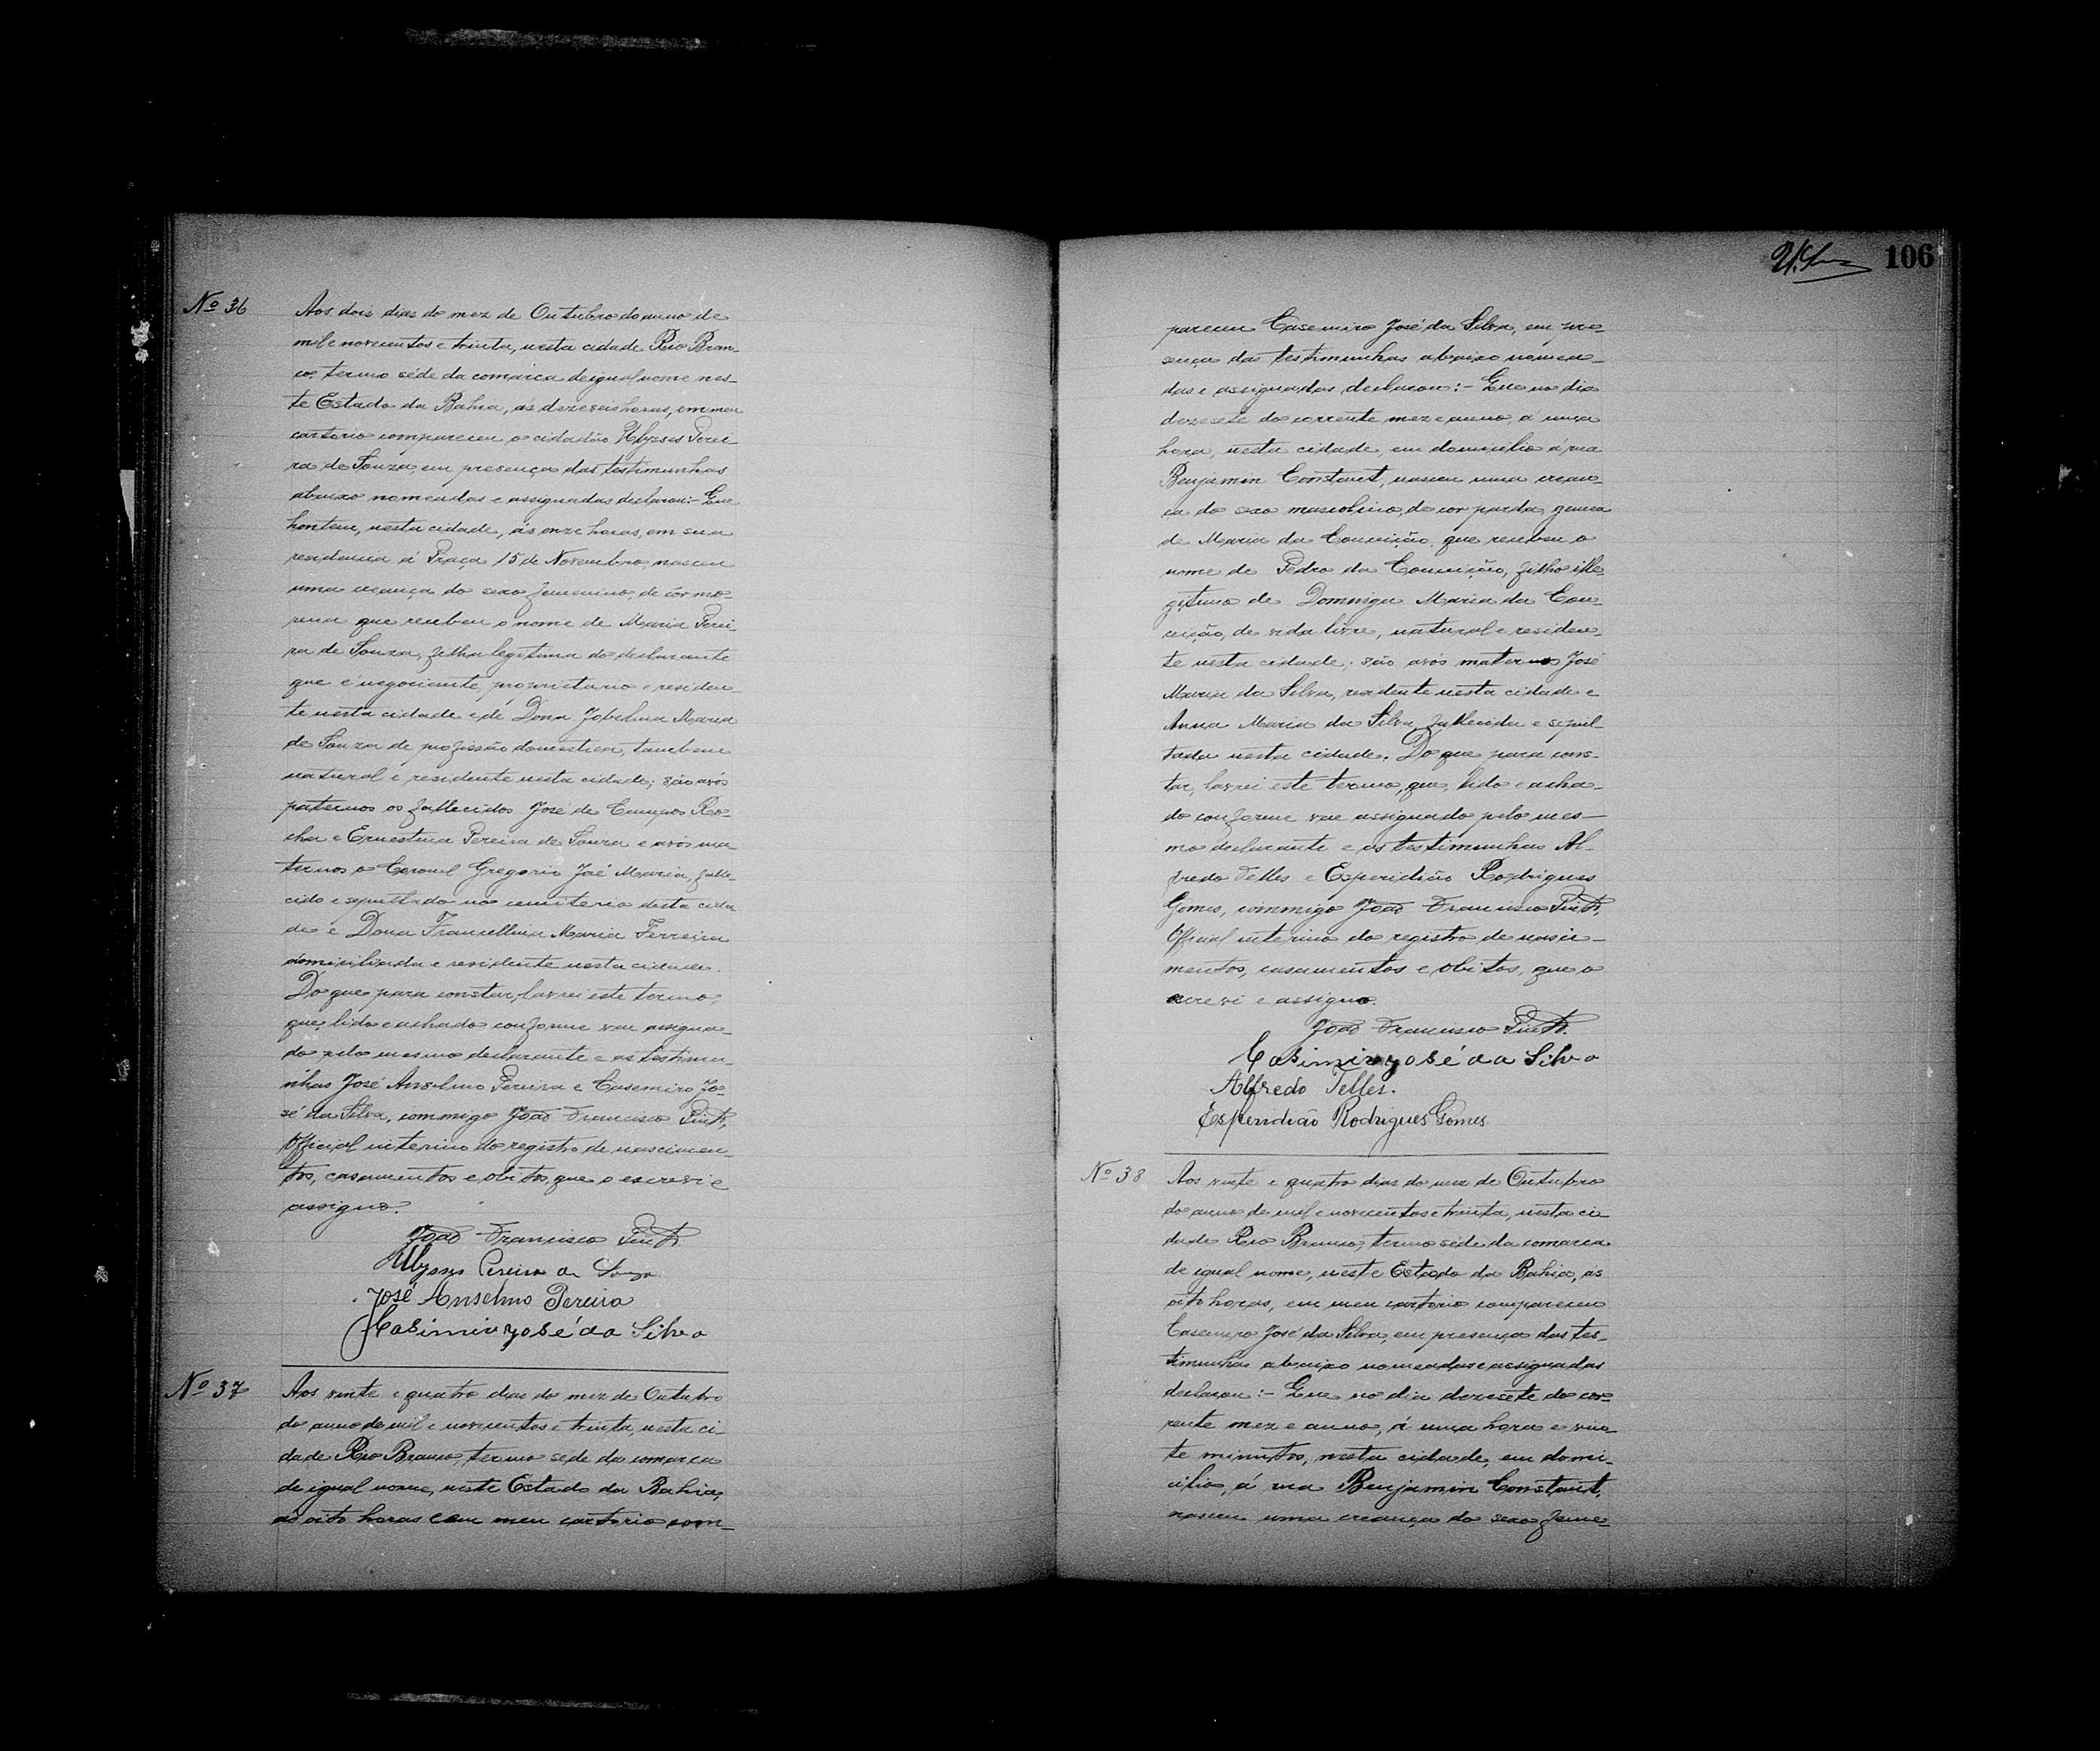 Nº 36
Aos dois dias do mez de Outubro do anno de
mil e novecentos e trinta, nesta cidade Rio Bran-
co, termo séde da comarca de igual nome nes-
te Estado da Bahia, ás dezeseis horas, em meu
cartorio compareceu o cidadão Ulysses Perei
ra de Souza em presença das testimunhas
abaixo nomeadas e assignadas declarou:- Que
hontem, nesta cidade, ás onze horas, em sua
residencia á Praça 15 de Novembro, nasceu
uma creança do sexo femenino, de côr mo-
rena que recebeu o nome de Maria Perei-
ra de Souza, filha legitima do declarante
que é negociante, proprietario e residen
te nesta cidade e de Dona Maria
de Souza de profissão domestica, tambem
natural e residente nesta cidade; são avós
paternos os fallecidos José de Campos Ro-
cha e Ernestina Pereira de Souza e avós ma
ternos o Coronel Gregorio José Maria, falle-
cido e sepultado no cemiterio desta cida
de e Dona Francellina Maria Ferreira
domiciliada e residente nesta cidade.
Do que para constar, lavrei este termo,
que, lido e achado conforme vae assigna-
do pelo mesmo declarante e as testimu-
nhas José Anselmo Pereira e Casemiro Jo-
sé da Silva, commigo João Francisco Pinto,
Official interino do registro de nascimen-
tos, casamentos e obitos, que o escrevi e
assigno.
João Francisco Pinto
Ulysses Pereira de Souza
José Anselmo Pereira
Casimiro José da Silva
Nº 37
Aos vinte e quatro dias do mez de Outubro
do anno de mil e novecentos e trinta, nesta ci-
dade Rio Branco, termo séde da comarca
de igual nome, neste Estado da Bahia,
ás oito horas em meu cartorio com-
106
pareceu Casemiro José da Silva, em pre-
sença das testimunhas abaixo nomea-
das e assignadas declarou:- Que no dia
dezesete do corrente mez e anno, á uma
hora, nesta cidade, em domicilio á rua
Benjamin Constant, nasceu uma crean-
ça do sexo masculino, de cor parda, gemea
de Maria da Conceição, que recebeu o
nome de Pedro da Conceição, filho ille-
gitimo de Dominga Maria da Con-
ceição, de vida livre, natural e residen-
te nesta cidade; são avós maternos José
Maria da Silva, residente nesta cidade e
Anna Maria da Silva, fallecida e sepul-
tada nesta cidade. Do que para cons-
tar, lavrei este termo, que, lido e acha-
do conforme vae assignado pelo mes-
mo declarante e as testimunhas Al-
fredo Telles e Esperidião Rodrigues
Gomes, commigo João Francisco Pinto,
Official interino do registro de nasci-
mentos, casamentos e obitos, que o
escrevi e assigno.
João Francisco Pinto.
Casimiro José da Silva
Alfredo Telles.
Esperidião Rodrigues Gomes
Nº 38
Aos vinte e quatro dias do mez de Outubro
do anno de mil e novecentos e trinta, nesta ci-
dade Rio Branco, termo séde da comarca
de igual nome, neste Estado da Bahia, as
oito horas, em meu cartorio compareceu
Casemiro José da Silva, em presença das tes-
timunhas abaixo nomeadas e assignadas
declarou:- Que no dia dezesete do cor-
rente mez e anno, á uma hora e vin-
te minutos, nesta cidade, em domi-
cilio, á rua Benjamin Constant,
nasceu uma creança do sexo feme-